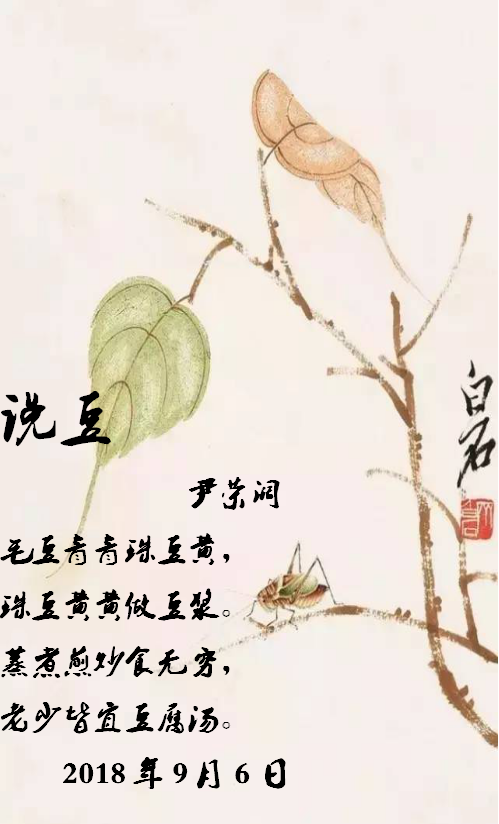 白石
说豆
尹荣润
毛豆青青珠豆黄，
珠豆黄黄做豆浆。
蒸煮煎炒食无穷，
老少皆宜豆腐汤。
2018年9月6日